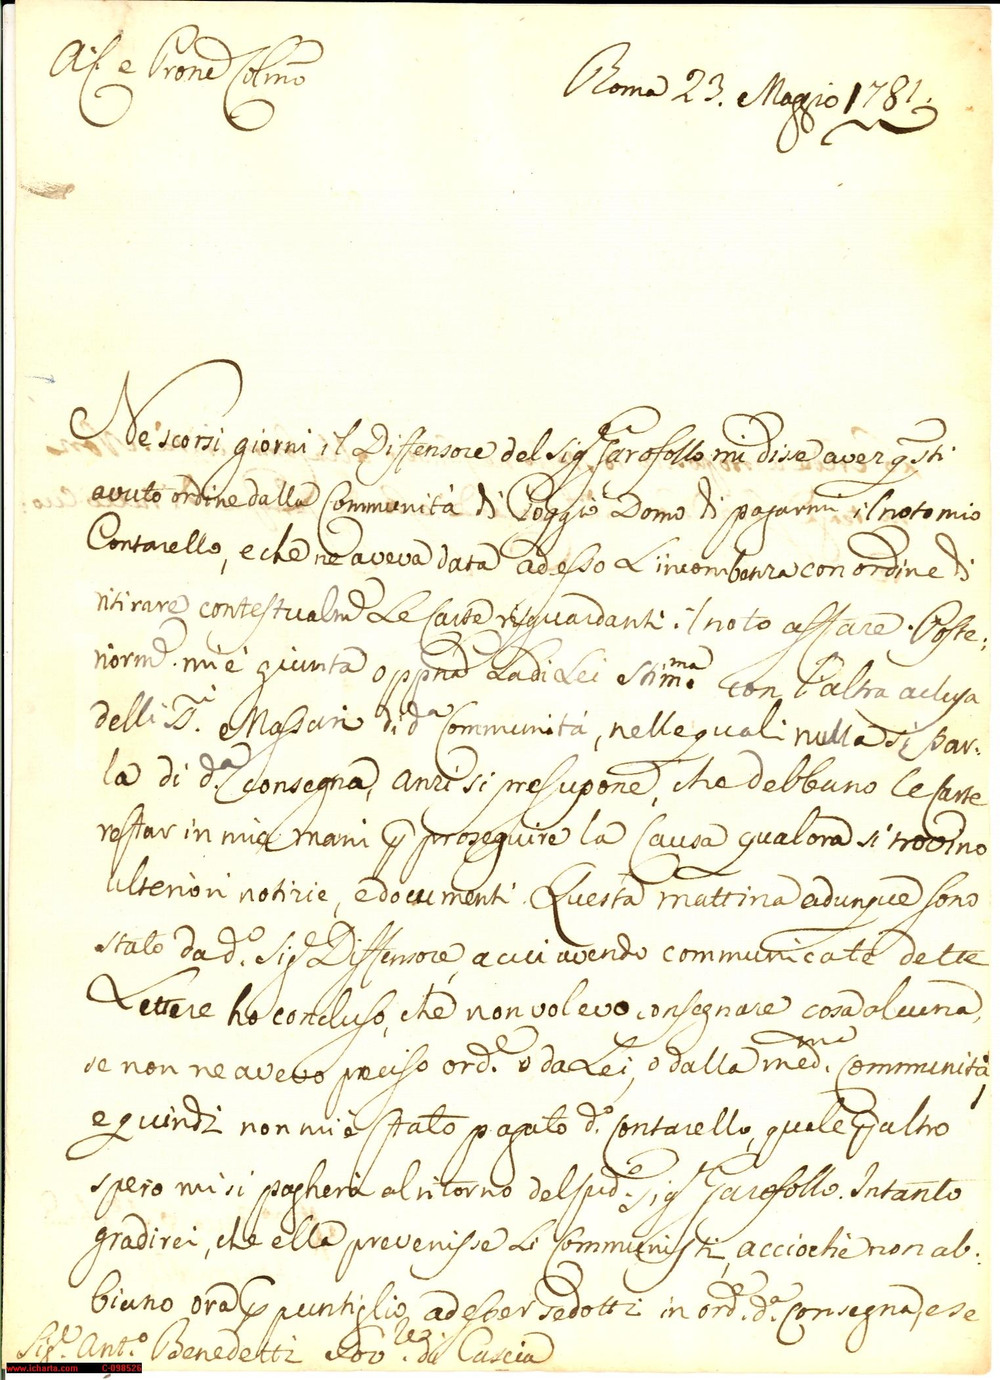 Roma 23. Maggio 1781.
Ne' scorsi giorni il Diffensore del Sig.r Garofollo mi disse aver q̃sti
avuto ordine dalla Communità di Poggio Domo di pagarmi il noto mio
Contarello, e che ne aveva data adesso L'incombenza con ordine di
ritirare contestualm.e Le Carte risguardanti il noto affare. Poste:
riorm.e mi è giunta La di Lei stim.ma con l'altra aclusa
delli Massari di d.a Communità, nelle quali nulla si par:
la di d.a Consegna, anzi si presupone, che debbano le Carte
restar in mie mani p proseguire la Causa qualora si trovino
ulteriori notizie, e documenti. Questa mattina adunque sono
stato da d.o Sig.e Diffensore, a cui avendo communicate dette
Lettere ho concluso, che non volevo consegnare cosa alcuna,
se non ne avevo preciso ord.e o da Lei, o dalla med.ma Communità,
e quindi non mi è stato pagato d.o Contarello, quale p altro
spero mi si pagherà al ritorno del sud.o Sig.r Garofollo. Intanto
gradirei, che ella prevenisse Li Communisti, acciochè non ab:
biano ora p puntiglio ad esser sedotti in ord.e d.a Consegna, e se
Sig.r Ant.o Benedetti di Cascia
www.icharta.com C-098526